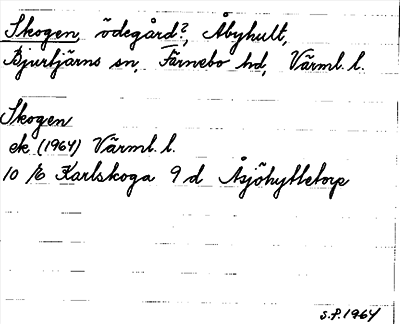 Skogen, ödegård?, Åbyhult,
Bjurtjärns sn, Färnebo hd, Värml. l.
Skogen
ek (1964) Värml. l.
10 /6 Karlskoga 9 d Åsjöhyttetorp
S.P. 1964